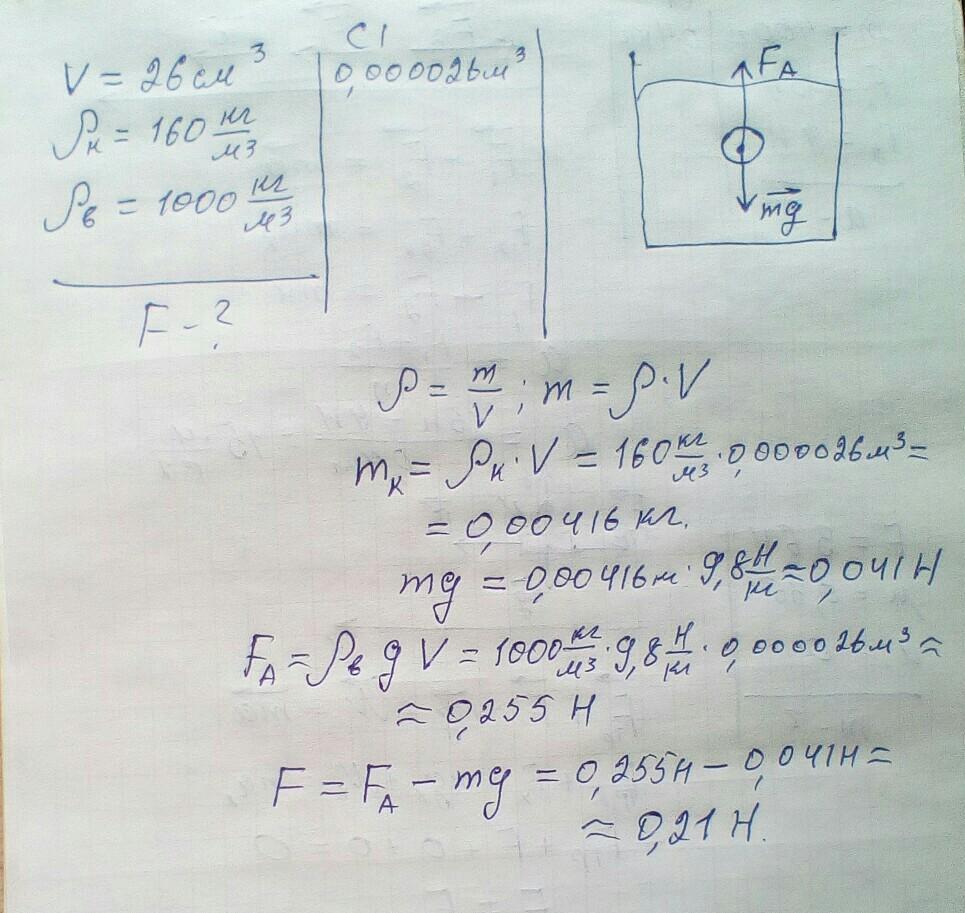 СІ
V = 26 см³
0,000026 м³
ρк = 160 кг/м³
ρв = 1000 кг/м³
F - ?
FA
mg
ρ = m/V ; m = ρ·V
mк = ρк·V = 160 кг/м³ · 0,000026 м³ =
= 0,00416 кг.
mg = 0,00416 кг · 9,8 Н/кг ≈ 0,041 Н
FA = ρв g V = 1000 кг/м³ · 9,8 Н/кг · 0,000026 м³ ≈
≈ 0,255 Н
F = FA − mg = 0,255 Н − 0,041 Н =
≈ 0,21 Н.